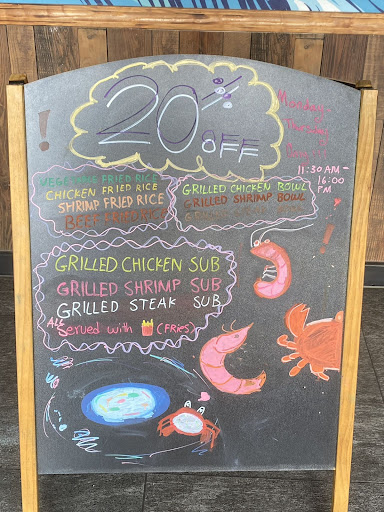 20% OFF
Monday-
11:30 AM -
16:00
PM
VEGETABLE FRIED RICE
CHICKEN FRIED RICE
SHRIMP FRIED RICE
BEEF FRIED RICE
GRILLED CHICKEN BOWL
GRILLED SHRIMP BOWL
GRILLED CHICKEN SUB
GRILLED SHRIMP SUB
GRILLED STEAK SUB
All Served with (FRies)